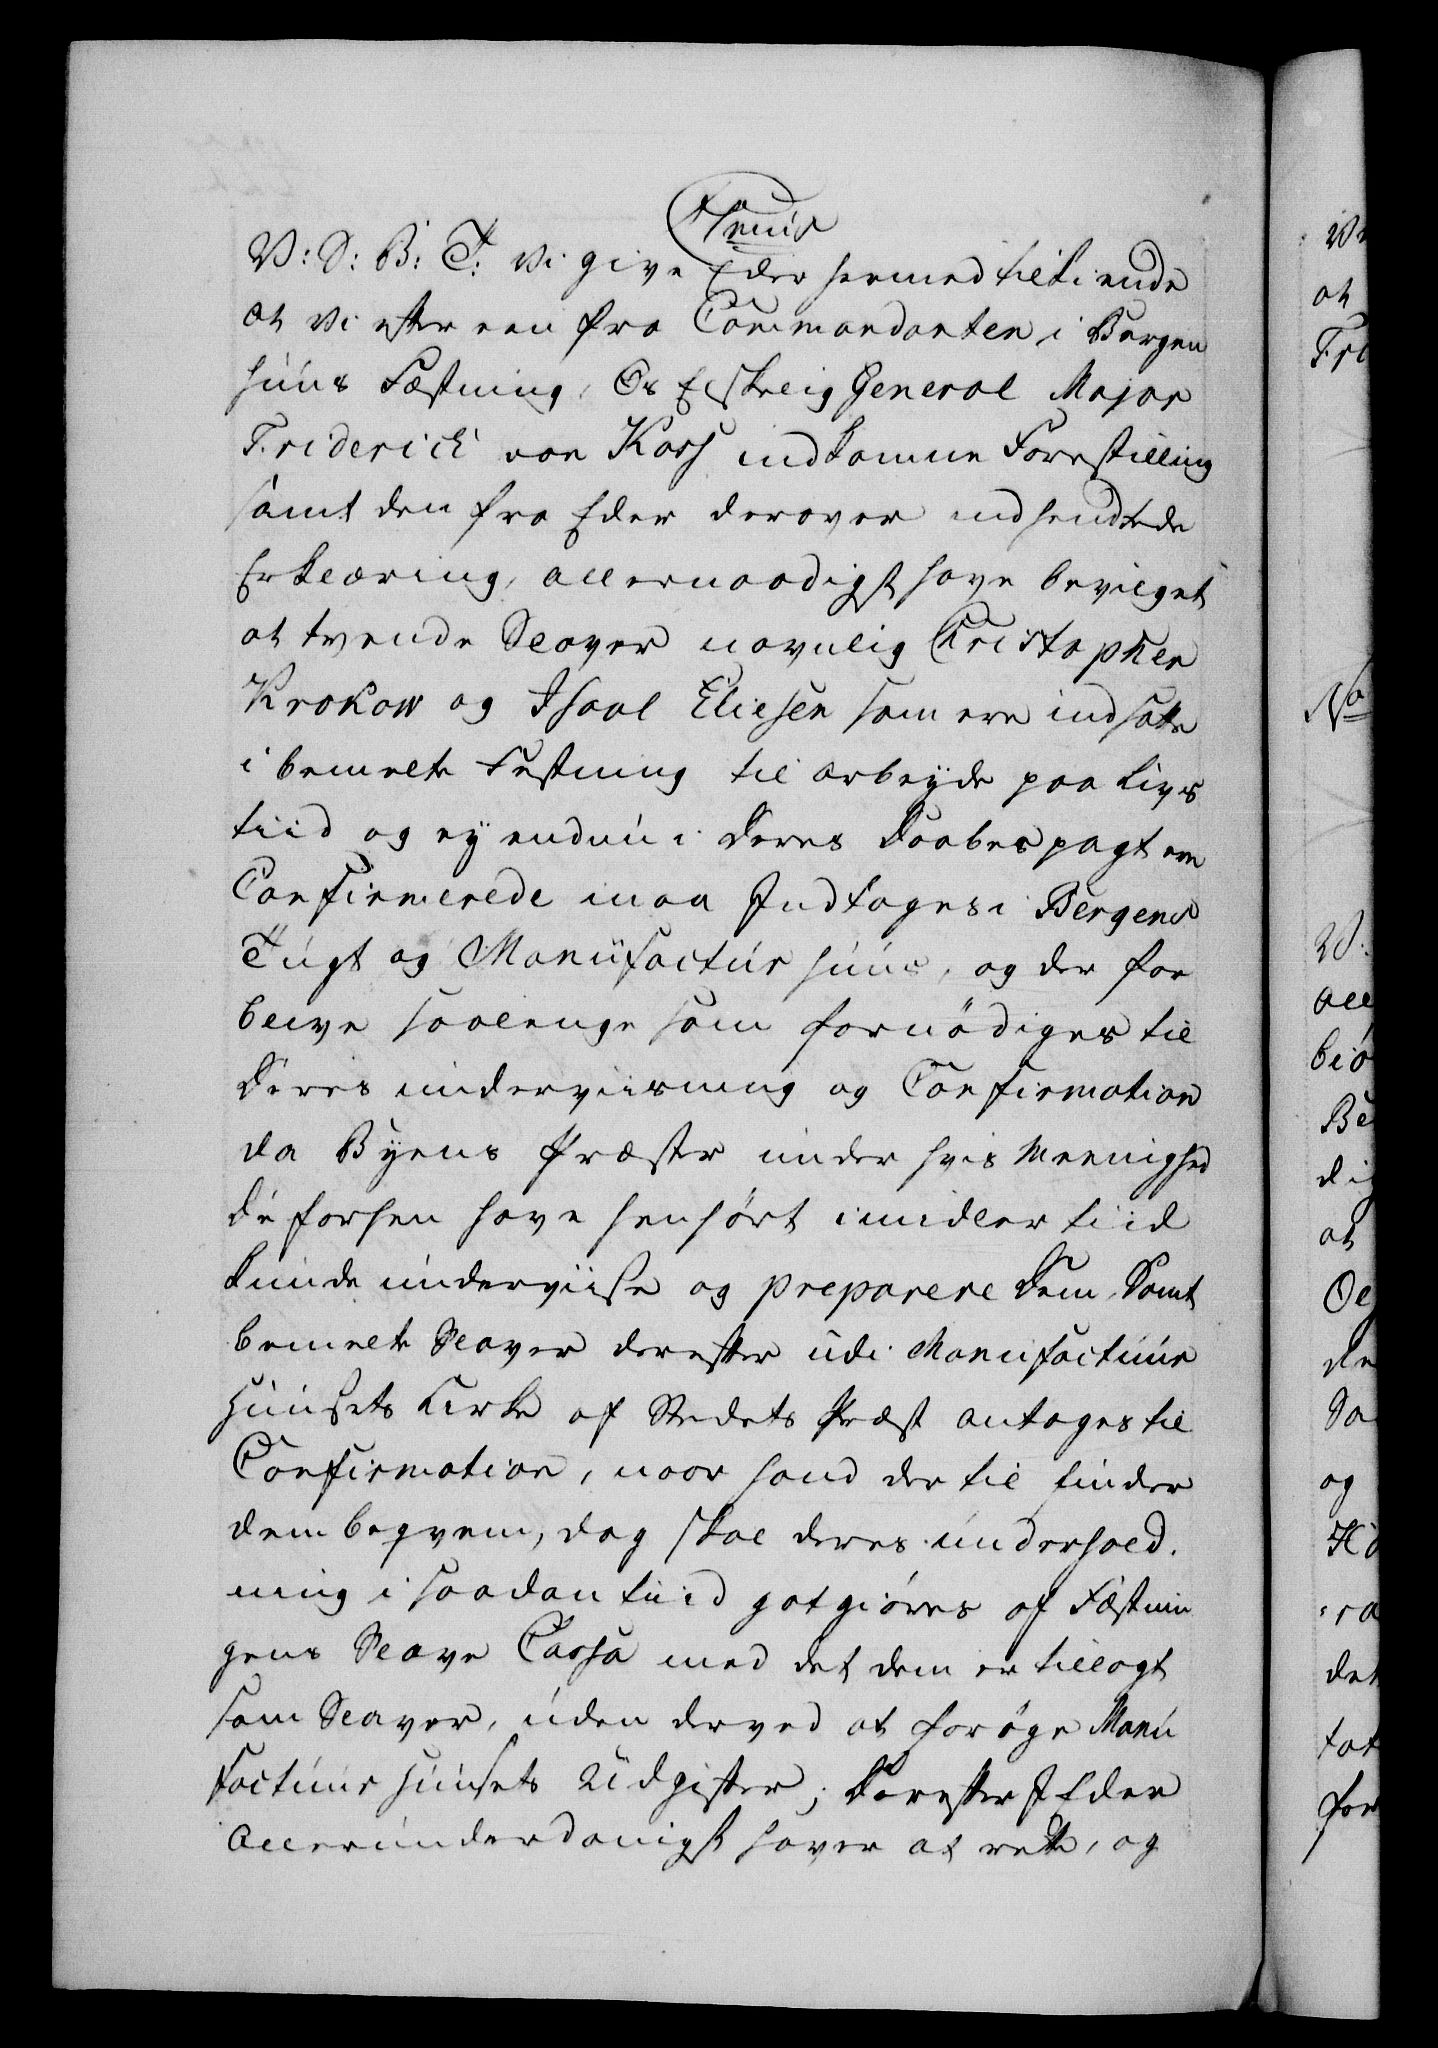 V: S: B: T: Vi give Eder hermed tilkiende
at Vi efter een fra Commandanten i Bergen
huus Fæstning, Os Elskelig General Major
Friderich von Kass indkommen Forestilling
samt den fra Eder derover indsendtede
Erklæring, allernaadigst have bevilget
at tvende Slaver navnlig Christopher
Krokow og Isaal Eliesen som ere indsatte
i bemelte Festning til arbeyde paa Livs
tiid og ey endnu i deres Daabes pagt ere
Confirmerede maa Indtages i Bergens
Tugt og Manufactur huus, og der for
blive saalenge som fornødiges til
deres underviisning og Confirmation
da Byens Præster under hvis Meenighed
de forhen have henhørt imidlertiid
kunde underviise og preparere dem, Samt
bemelte Slaver derefter udi Manufactuur
Huusets Kirke af Stedets Præst antages til
Confirmation, naar hand der til finder
dem beqvem, dog skal deres underhold.
ning i saadan tiid gotgiøres af Fæstnin
gens Slave Cassa med det dem er tillagt
som Slaver, uden derved at forøge Manu
factuur Huusets Udgifter; Derefter I Eder
allerunderdanigst haver at rette, og